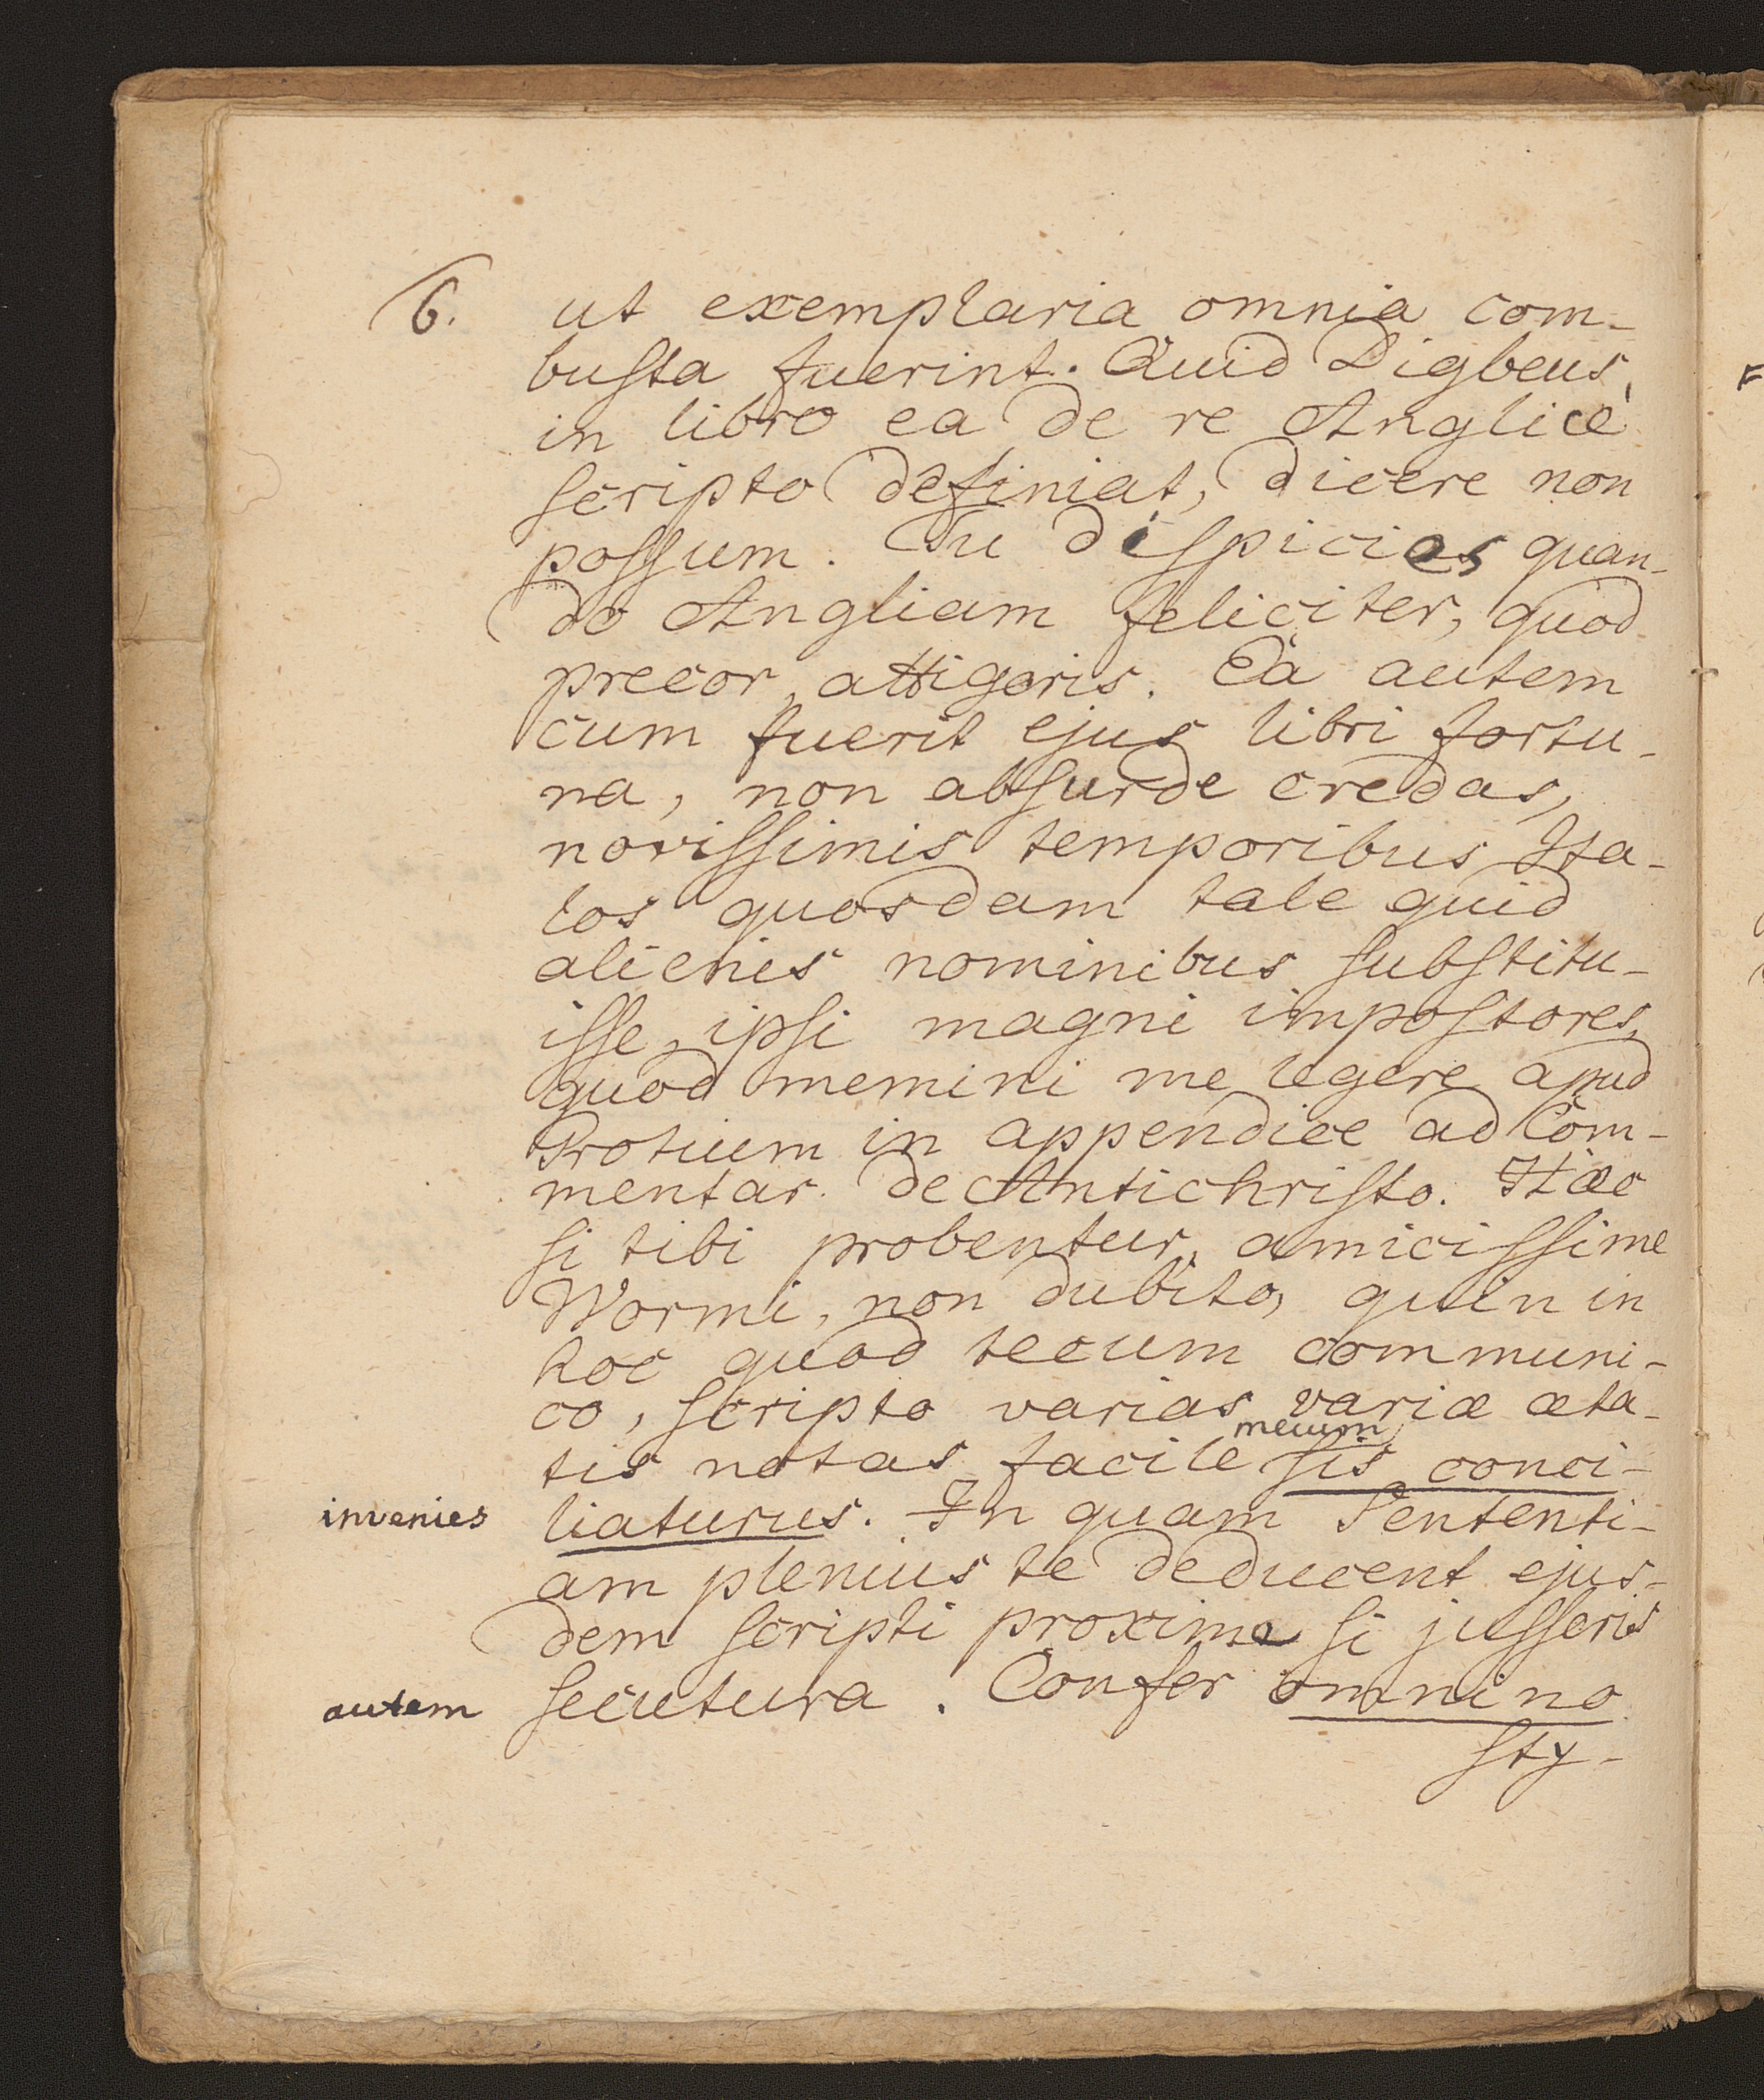 6.
ut exemplaria omnia com-
buſta fuerint. Quid Digbeus,
in libro ea de re Anglicè
ſcripto definiat, dicere non
poſſum. Tu diſpicies quan-
do Angliam feliciter, quod
precor, attigeris. Ea autem
cum fuerit ejus libri fortu-
na, non abſurde credas,
noviſſimis temporibus Ita-
los quosdam tale quid
alienis nominibus ſubſtitu-
iſſe, ipſi magni impoſtores,
quod memini me legere apud
Grotium in appendice ad Com-
mentar. de Antichriſto. Hæc
ſi tibi probentur, amiciſſime
Wormi, non dubito, quin in
hoc quod tecum communi-
co, ſcripto varias variæ æta-
mecum
tis notas facile ſis conci-
invenies
liaturus. In quam Sententi-
am plenius te deducent ejus-
dem ſcripti proxime ſi juſſeris
autem
ſecutura. Confer omnino
ſty-